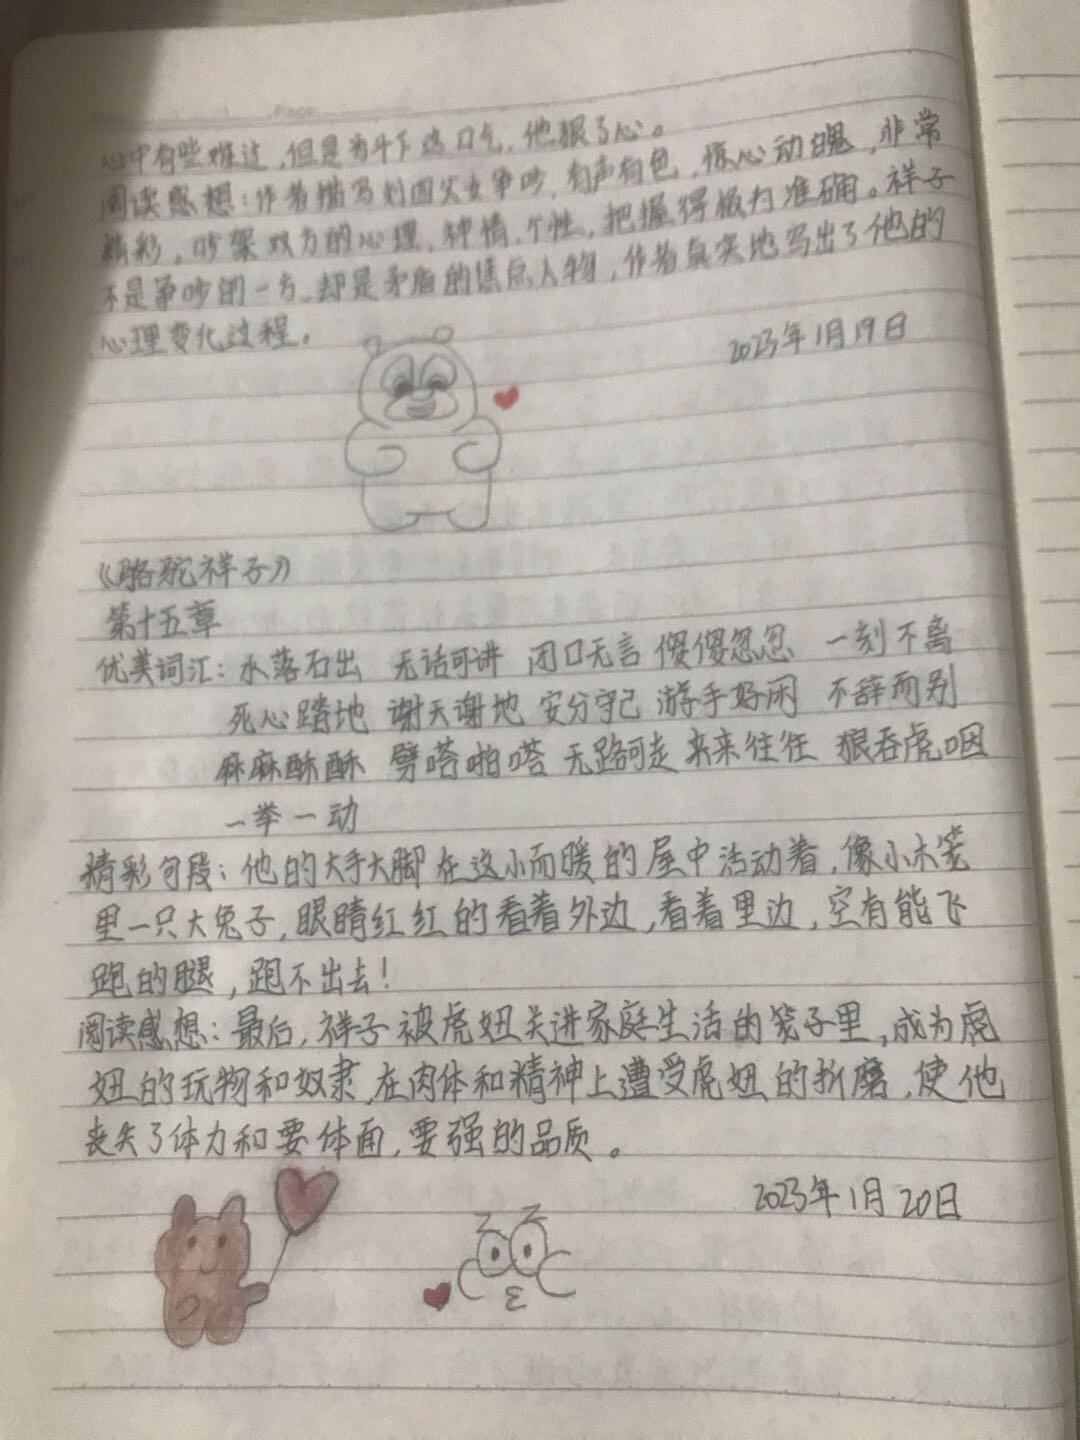 心中有些难过,但是为斗下这口气,他狠了心。
阅读感想:作者描写刘四父女争吵,有声有色,惊心动魄,非常
精彩,吵架双方的心理,神情,个性,把握得极为准确。祥子
不是争吵的一方,却是矛盾的焦点人物,作者真实地写出了他的
心理变化过程。
2023年1月19日
《骆驼祥子》
第十五章
优美词汇:水落石出 无话可讲 闭口无言 傻傻忽忽 一刻不离
死心踏地 谢天谢地 安分守己 游手好闲 不辞而别
麻麻酥酥 劈嗒啪嗒 无路可走 来来往往 狼吞虎咽
一举一动
精彩句段:他的大手大脚在这小而暖的屋中活动着,像小木笼
里一只大兔子,眼睛红红的看着外边,看着里边,空有能飞
跑的腿,跑不出去!
阅读感想:最后,祥子被虎妞关进家庭生活的笼子里,成为虎
妞的玩物和奴隶,在肉体和精神上遭受虎妞的折磨,使他
丧失了体力和要体面,要强的品质。
2023年1月20日